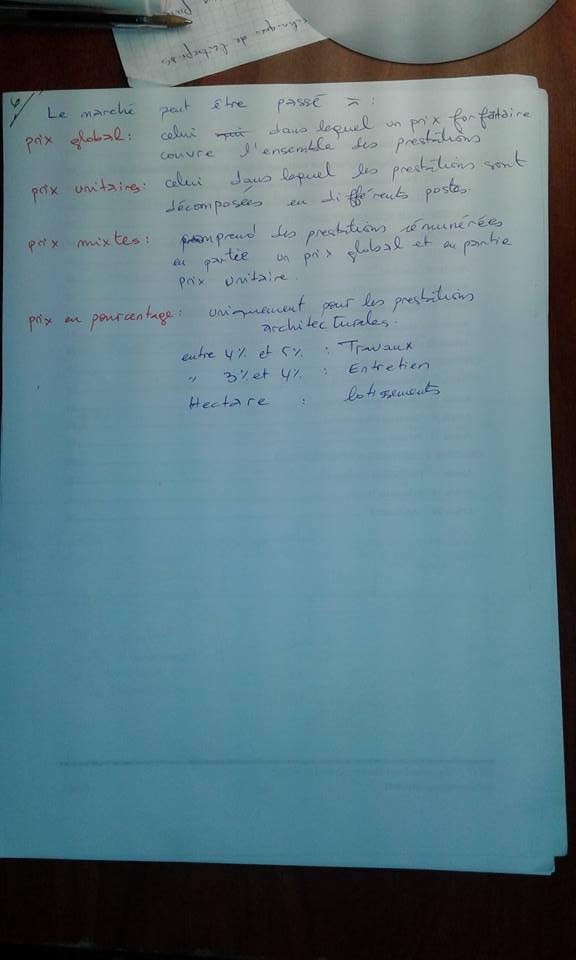 technique de
6/
Le marché peut être passé à :
prix global : celui dans lequel un prix forfaitaire
couvre l'ensemble des prestations
prix unitaires : celui dans lequel les prestations sont
décomposées en différents postes.
prix mixtes : comprend des prestations rémunérées
en partie un prix global et en partie
prix unitaire.
prix en pourcentage : uniquement pour les prestations
architecturales.
entre 4% et 5% : Travaux
" 3% et 4% : Entretien
Hectare : lotissements